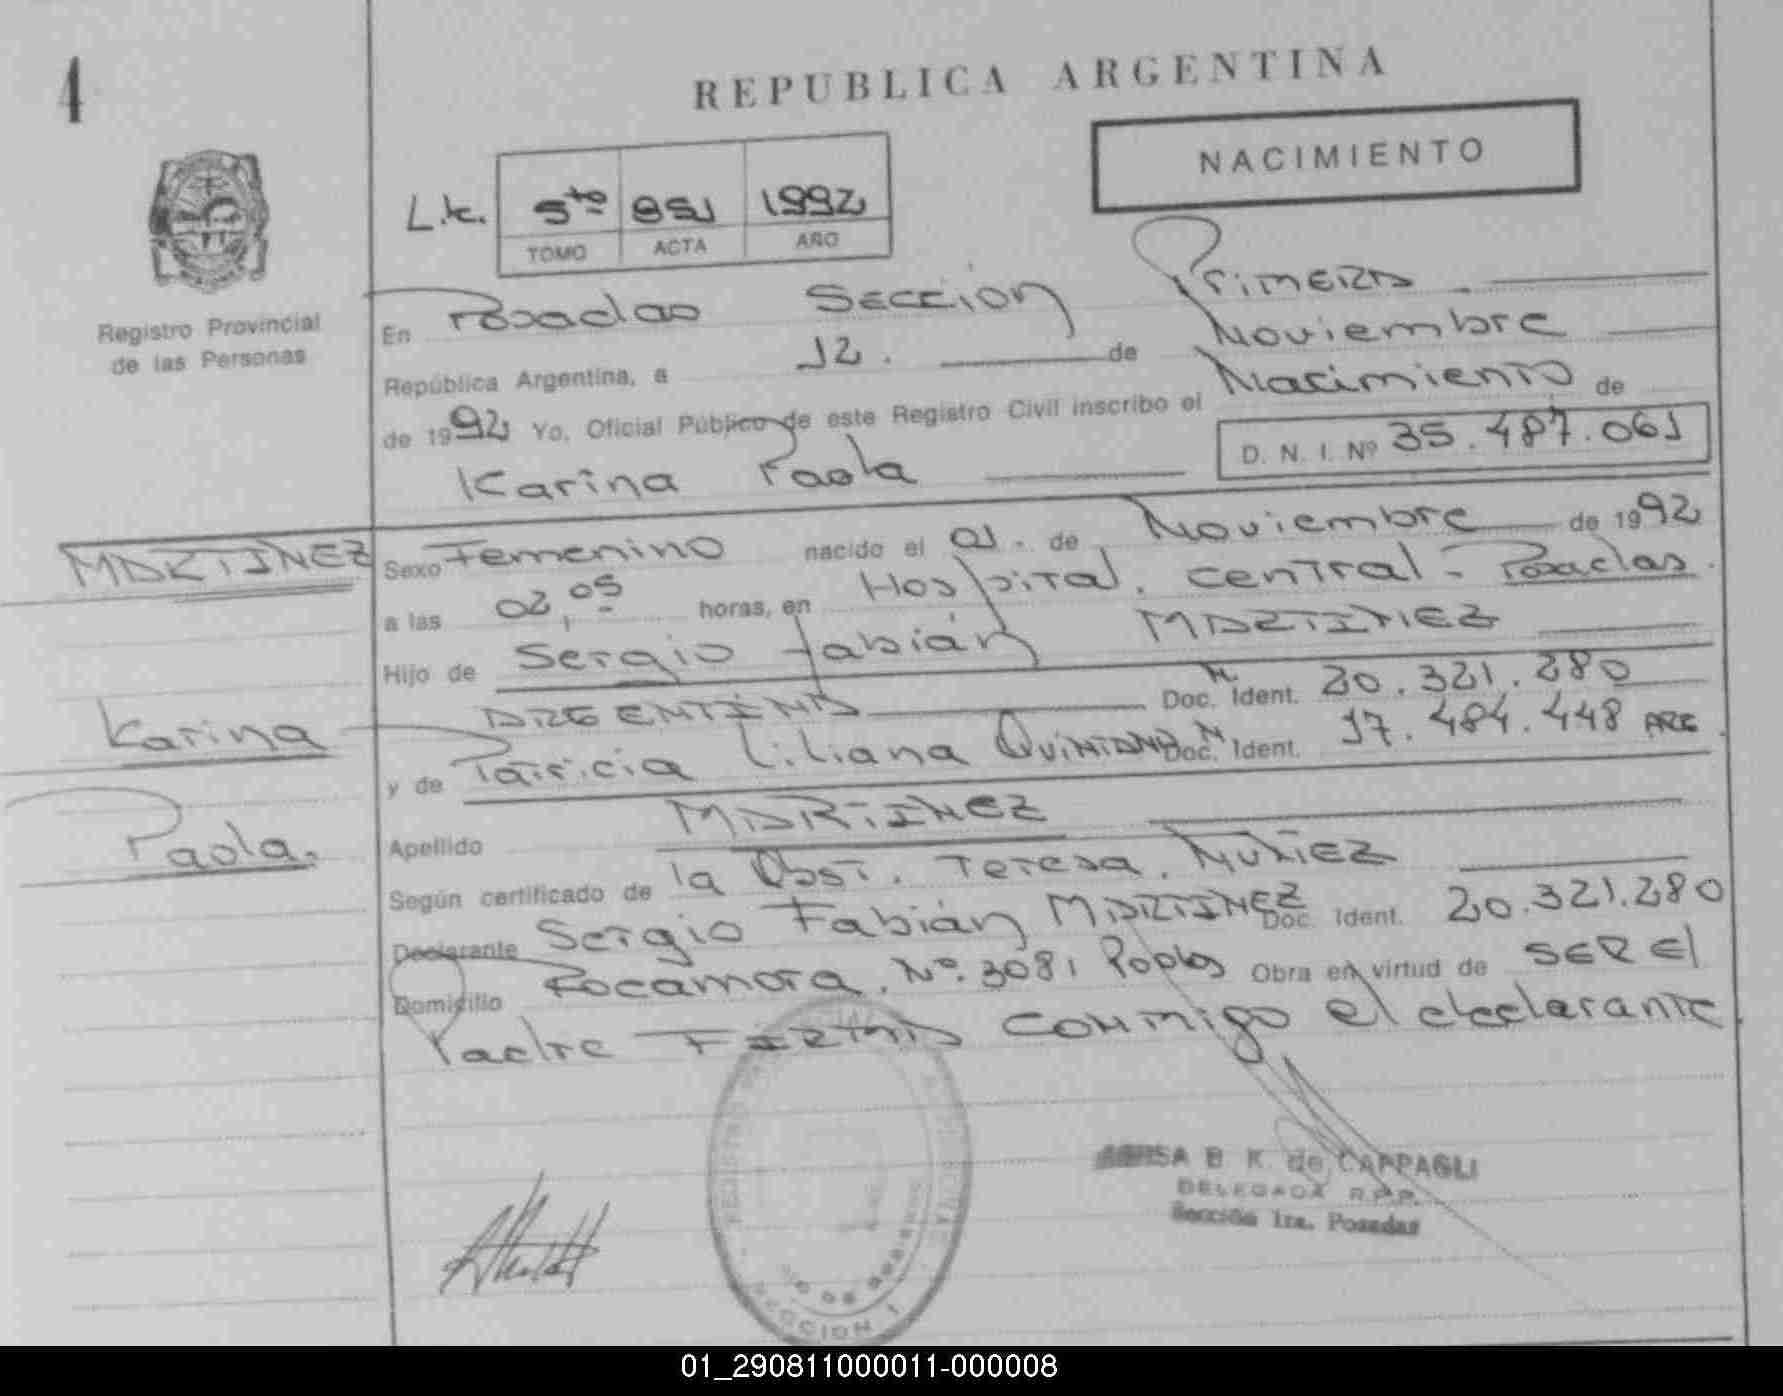 4
REPUBLICA ARGENTINA
NACIMIENTO
5to 851 1992
TOMO ACTA AÑO
Registro Provincial
de las Personas
En Posadas Sección Primera
República Argentina, a 12. de Noviembre
de 1992 Yo, Oficial Público de este Registro Civil inscribo el Nacimiento de
Karina Paola D. N. I. Nº 35.487.061
MARTINEZ
Karina
Paola.
Sexo Femenino nacido el 01. de Noviembre de 1992
a las 02,05 horas, en Hospital. central - Posadas.
Hijo de Sergio fabián MARTINEZ
ARGENTINA Doc. Ident. 20.321.280
y de Patricia Liliana QUINTANA Doc. Ident. 17.484.448 ARG
Apellido MARTINEZ
Según certificado de la Obst. Teresa. Nuñez
Declarante Sergio Fabián MARTINEZ Doc. Ident. 20.321.280
Domicilio Rocamora. Nº. 3081 Obra en virtud de SER El
Padre FIRMA conmigo el declarante
B. K. de CAPPAGLI
DELEGADA R.P.P.
Sección 1ra. Posadas
SECCION 1
01_290811000011-000008